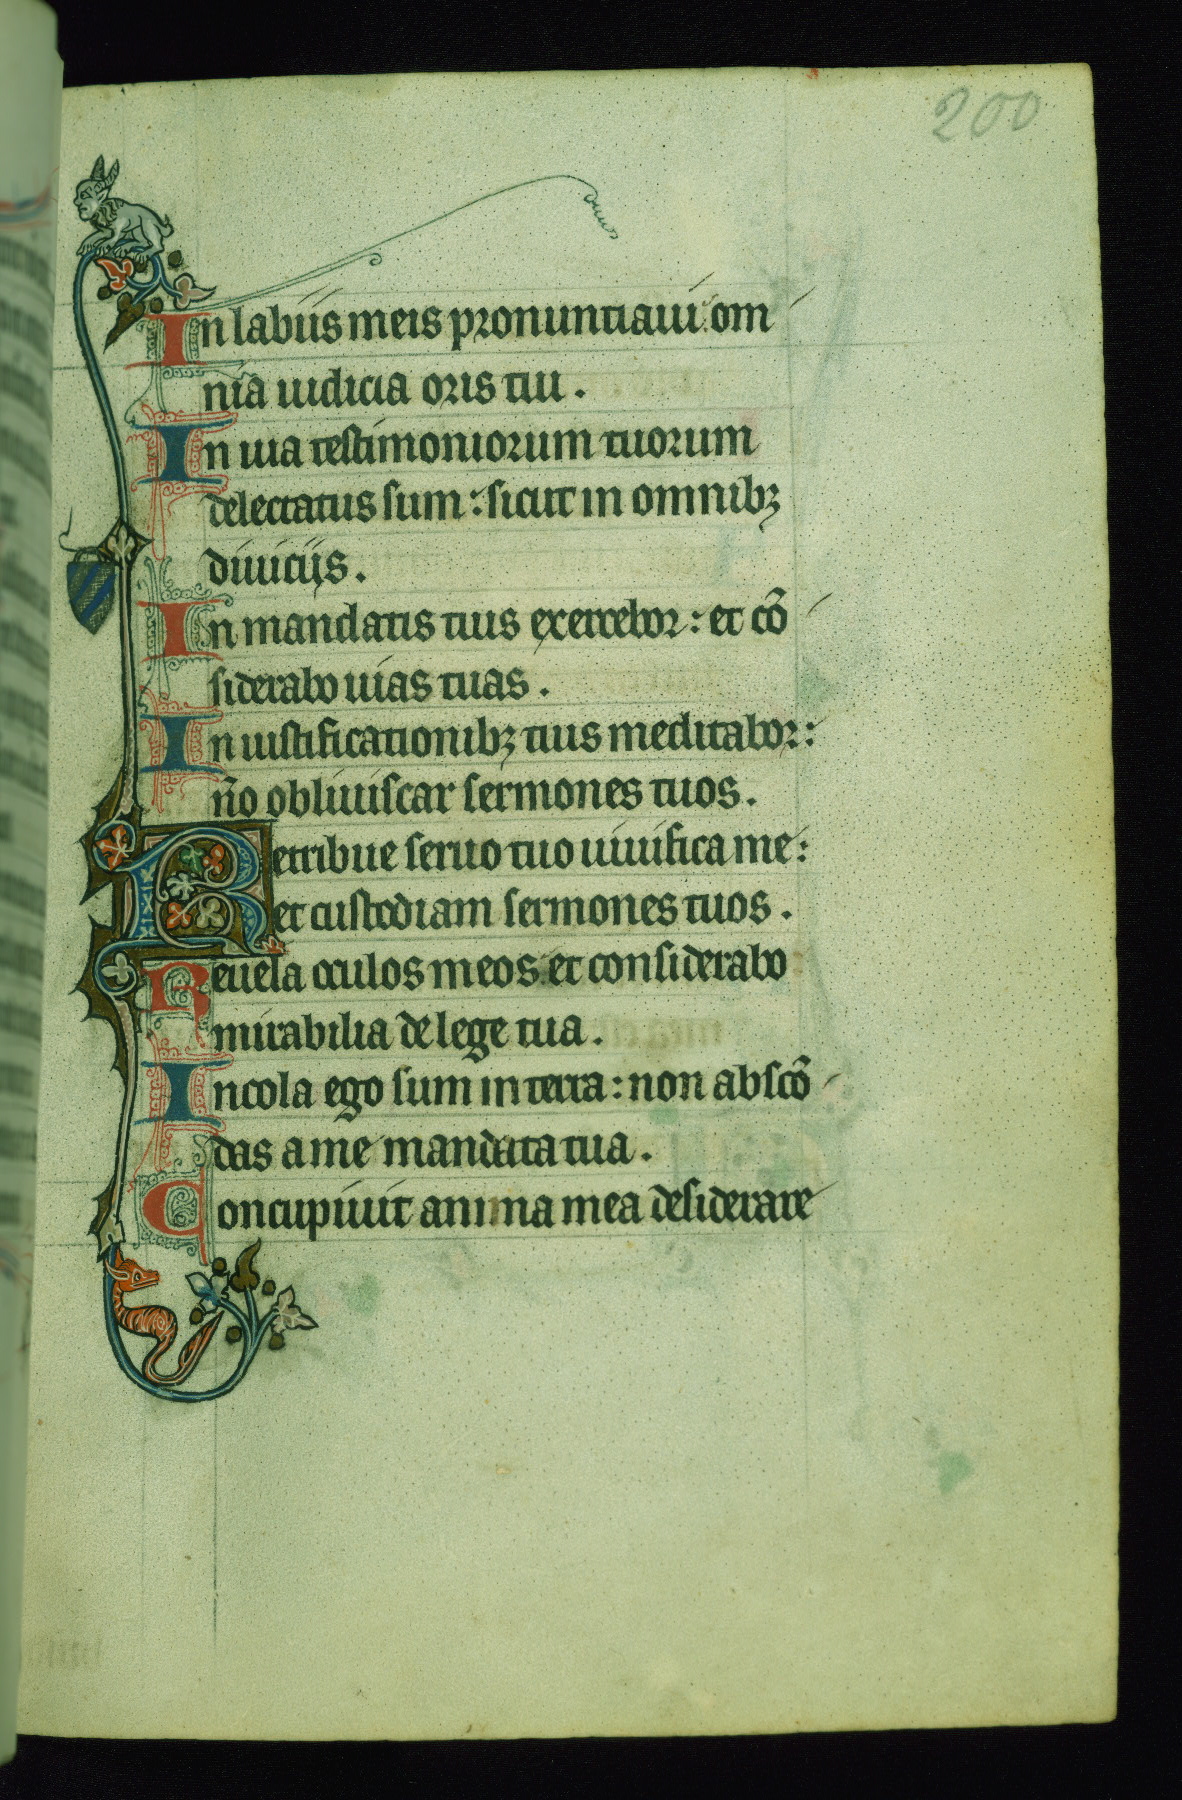 200
In labiis meis pronuntiaui om
nia iudicia oris tui.
In uia testimoniorum tuorum
delectatus sum: sicut in omnibꝫ
diuiciis.
In mandatis tuis exercebor: et cō
siderabo uias tuas.
In iustificationibꝫ tuis meditabor:
n̄o obliuiscar sermones tuos.
Retribue seruo tuo uiuifica me:
et custodiam sermones tuos.
Reuela oculos meos: et considerabo
mirabilia de lege tua.
Incola ego sum in terra: non abscō
das a me mandata tua.
Concupiuit anima mea desiderare